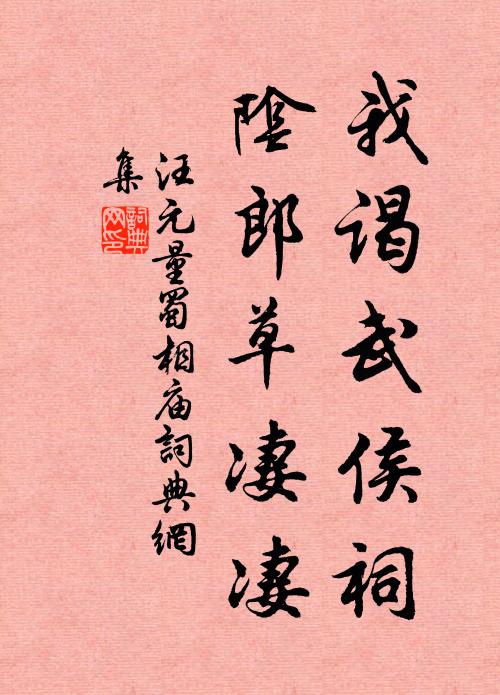 我谒武侯祠
陰郎草凄凄
汪元量蜀相庙詞典網
集
詞典
网印